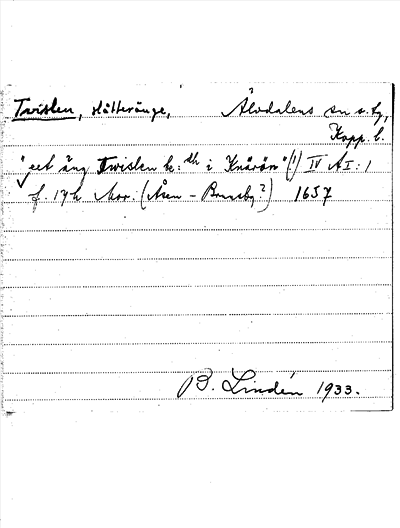 Twislen, slåtteränge, Älvdalens sn o. tg,
Kopp. l.
"eet äng Twislen k: th i Knårån" (!) IV A I: 1
f. 174 Mor: (Åsen - Brunsby?) 1657
B. Lindén 1933.